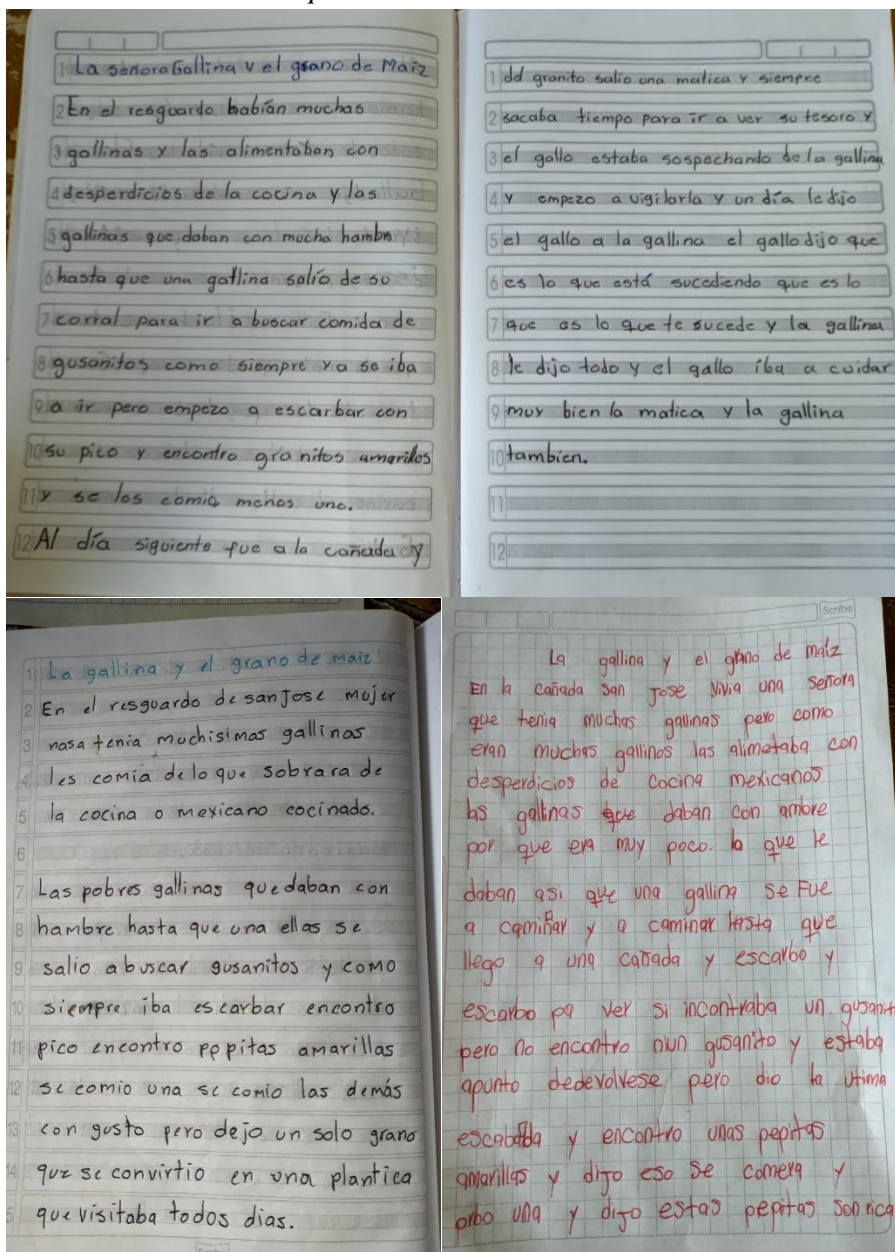 La señora Gallina y el grano de Maiz
En el resguardo habían muchas
gallinas y las alimentaban con
desperdicios de la cocina y las
gallinas que daban con mucha hambre
hasta que una gallina salío de su
corral para ir a buscar comida de
gusanitos como siempre ya se iba
a ir pero empezo a escarbar con
su pico y encontro gra nitos amarillos
y se los comio menos uno.
Al día siguiente fue a la cañada y
del granito salio una matica y siempre
sacaba tiempo para ir a ver su tesoro y
el gallo estaba sospechando de la gallina
y empezo a vigilarla y un día le dijo
el gallo a la gallina el gallo dijo que
es lo que está sucediendo que es lo
que es lo que te sucede y la gallina
le dijo todo y el gallo iba a cuidar
muy bien la matica y la gallina
tambien.
La gallina y el grano de maiz
En el resguardo de san Jose mujer
nasa tenia muchisimas gallinas
les comia de lo que sobrara de
la cocina o mexicano cocinado.
Las pobres gallinas quedaban con
hambre hasta que una ellas se
salio a buscar gusanitos y como
siempre iba escarbar encontro
pico encontro pepitas amarillas
se comio una se comio las demás
con gusto pero dejo un solo grano
que se convirtio en una plantica
que visitaba todos dias.
Scribe
La gallina y el grano de maiz
En la cañada San Jose Vivia una señora
que tenia muchas gallinas pero como
eran muchas gallinas las alimetaba con
desperdicios de cocina mexicanos
las gallinas que daban con ambre
por que era muy poco. lo que le
daban asi que una gallina se Fue
a caminar y a caminar hasta que
llego a una cañada y escarbo y
escarbo pa ver si incontraba un gusanit
pero no encontro niun gusanito y estaba
apunto dedevolvese pero dio la utima
y encontro unas pepitas
amarillas y dijo eso se comera y
probo una y dijo estas pepitas son rica